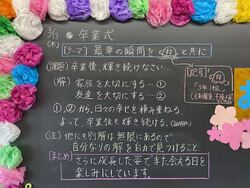 3/13 卒業式
(木)
【テーマ】最幸の瞬間を と共に
(課題) 卒業後、輝き続けなさい
(解) 家族を大切にする…①
友達を大切にする…②
①、②から、日々の幸せを積み重ねる
よって、卒業後も輝き続ける。
(注) 他にも別解は無限にあるので
自分なりの解を自力で見つけること。
【まとめ】
さらに成長した姿でまた会える日を
楽しみにしています。
【記号】
「3年1組」